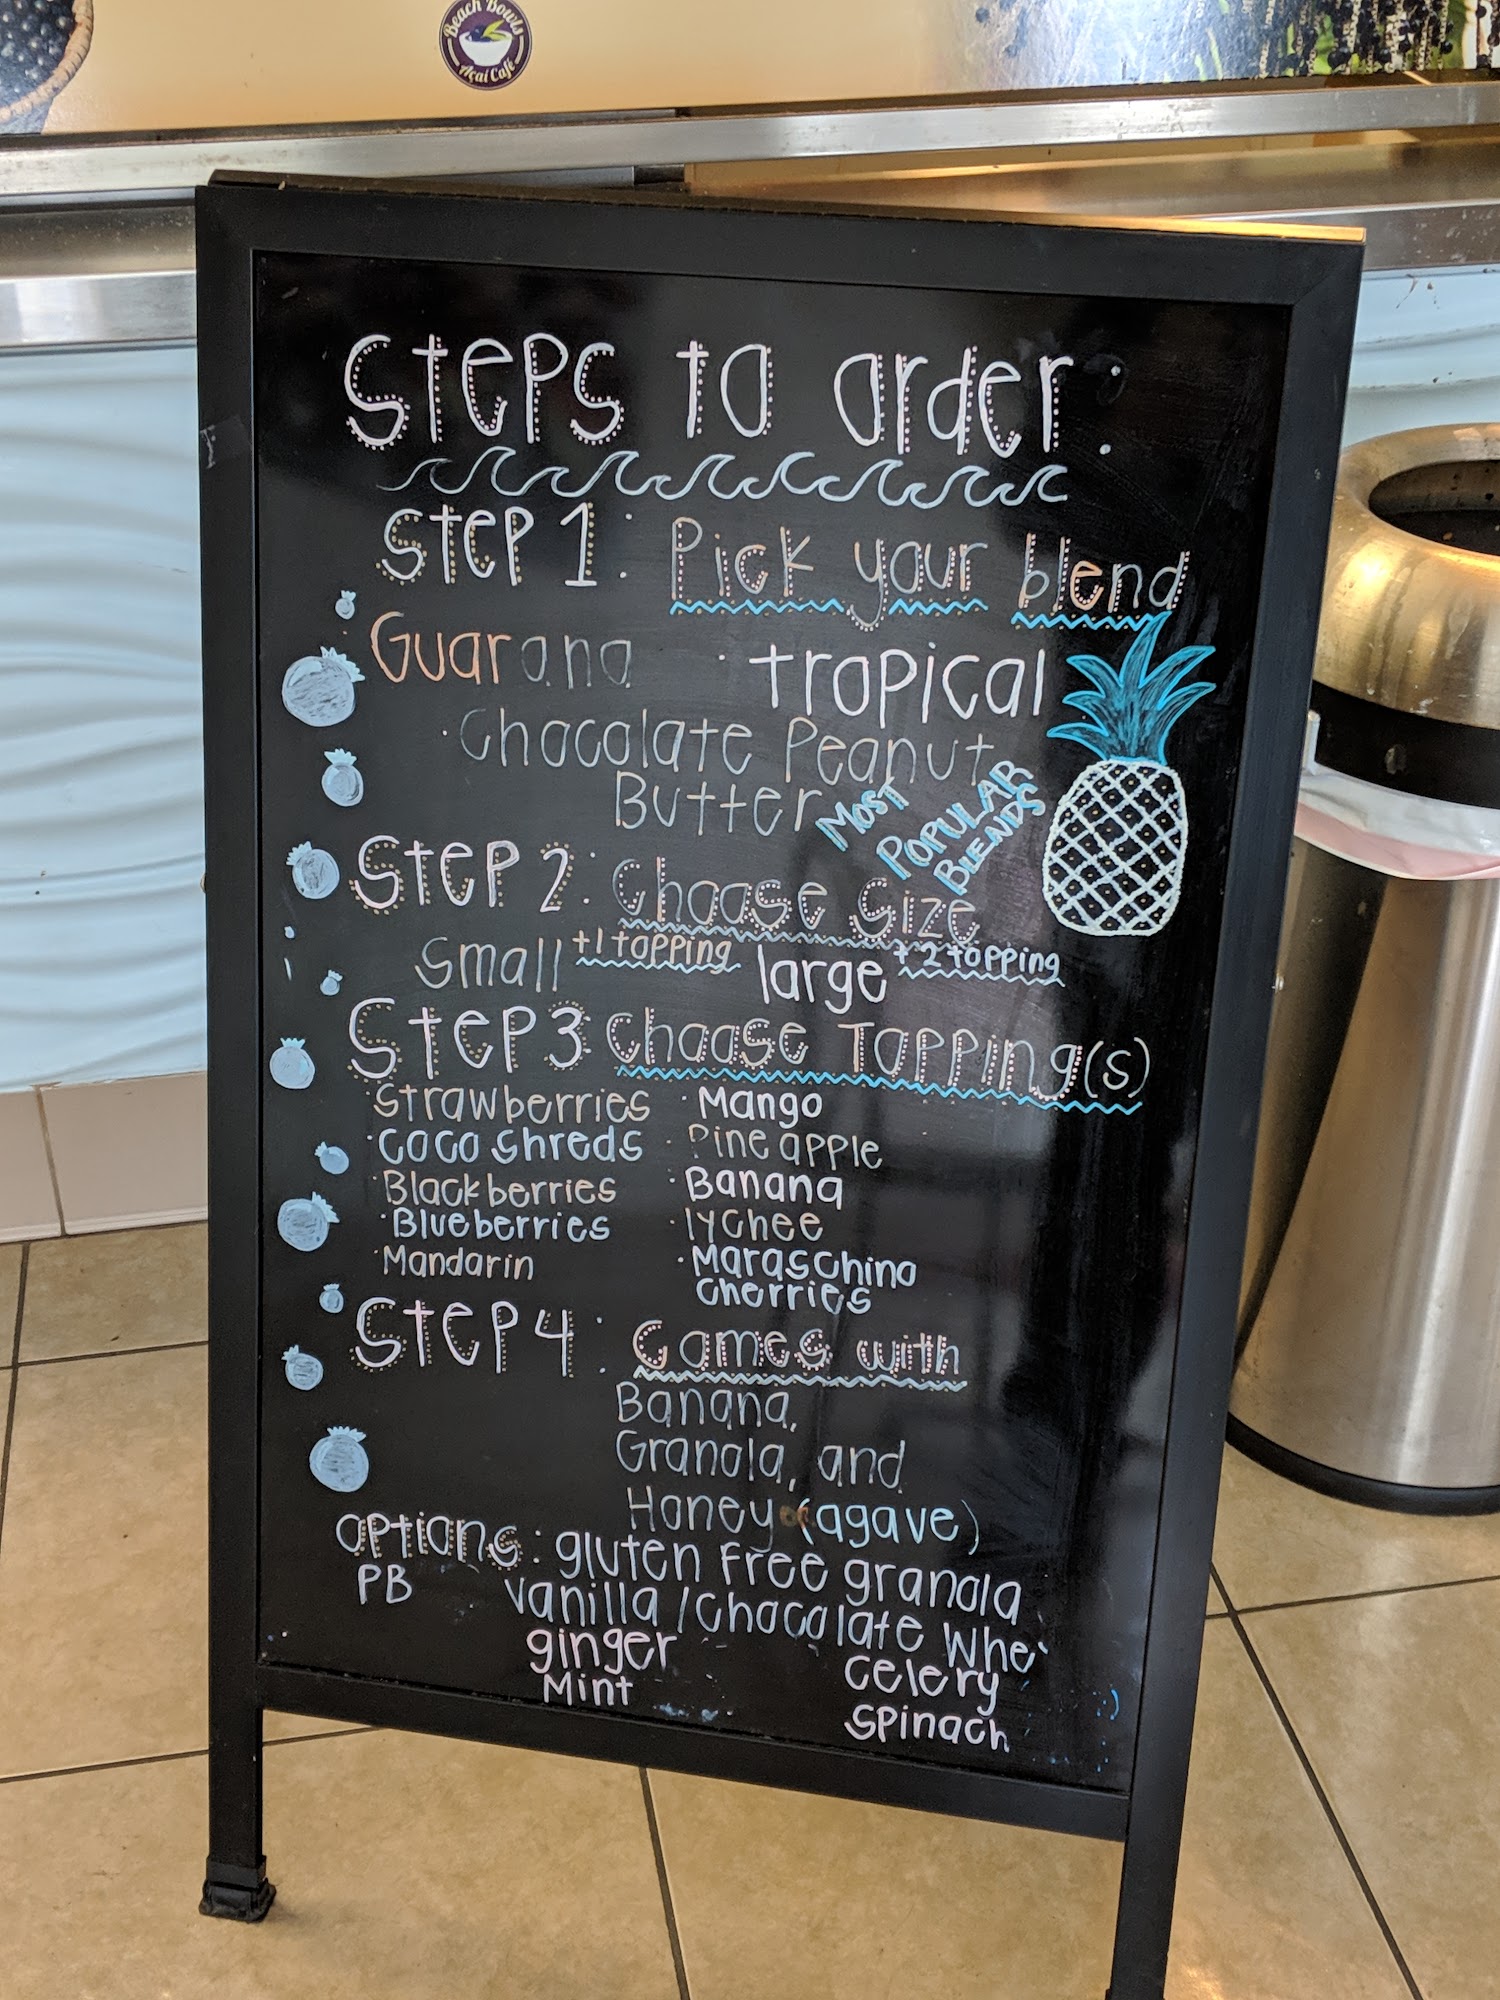 Beach Bowls
Açaí Café
Steps to order:
Step 1: Pick your blend
Guarana · tropical
· Chocolate Peanut
Butter
MOST
POPULAR
BLENDS
Step 2: Choose Size
Small +1 topping large + 2 topping
Step 3 Choose Topping(s)
· Strawberries · Mango
· Coco shreds · Pineapple
· Blackberries · Banana
· Blueberries · lychee
· Mandarin · Maraschino
Cherries
Step 4: Comes with
Banana,
Granola, and
Honey or (agave)
options: gluten free granola
PB vanilla / chocolate Whe
ginger celery
Mint spinach